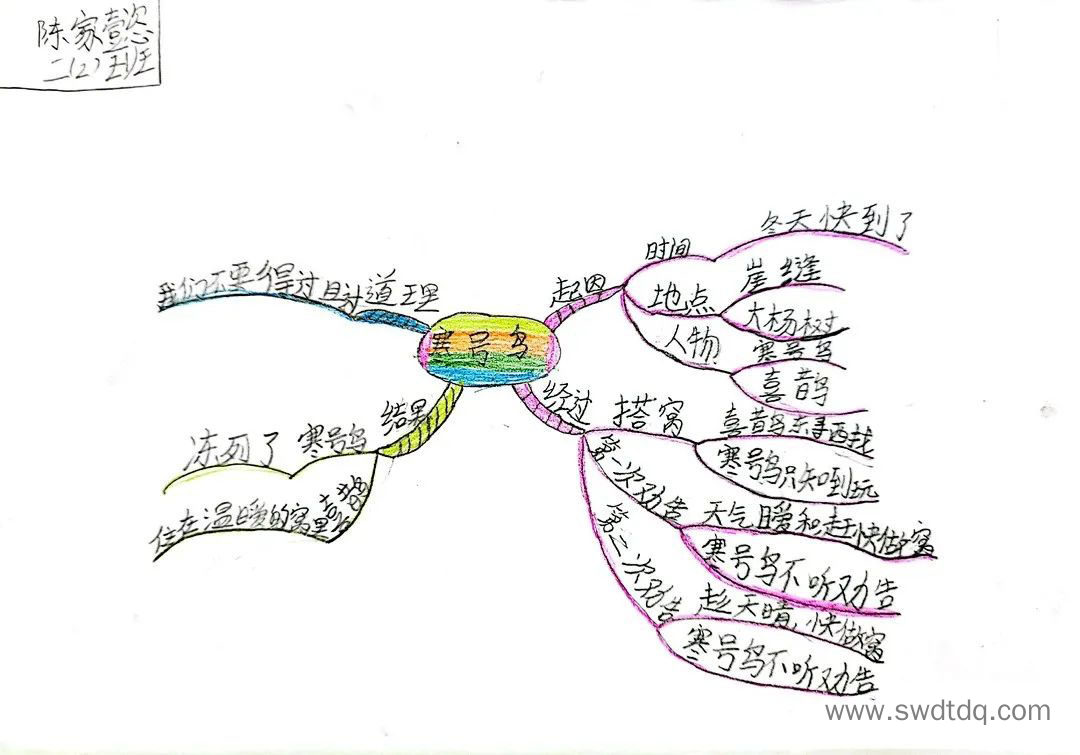 陈家壹恣
二(2)班
寒号鸟
起因
时间
冬天快到了
地点
崖缝
大杨树
人物
寒号鸟
喜鹊
经过
搭窝
喜鹊东寻西找
寒号鸟只知到玩
第一次劝告
天气暖和赶快做窝
寒号鸟不听劝告
第二次劝告
趁天晴,快做窝
寒号鸟不听劝告
结果
寒号鸟
冻死了
喜鹊
住在温暖的窝里
道理
我们不要得过且过
www.swdtdq.com